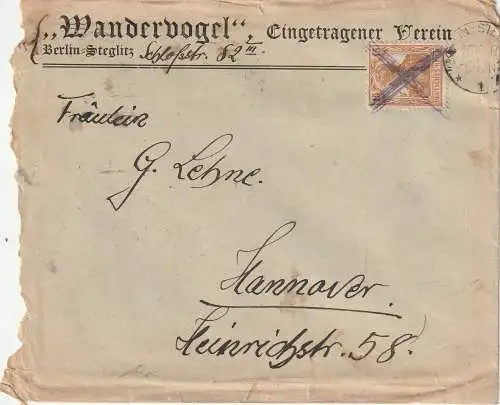 „Wandervogel“, Eingetragener Verein
Berlin-Steglitz Schloßstr. 82 III
Fräulein
G. Lehne.
Hannover.
Heinrichstr. 58.